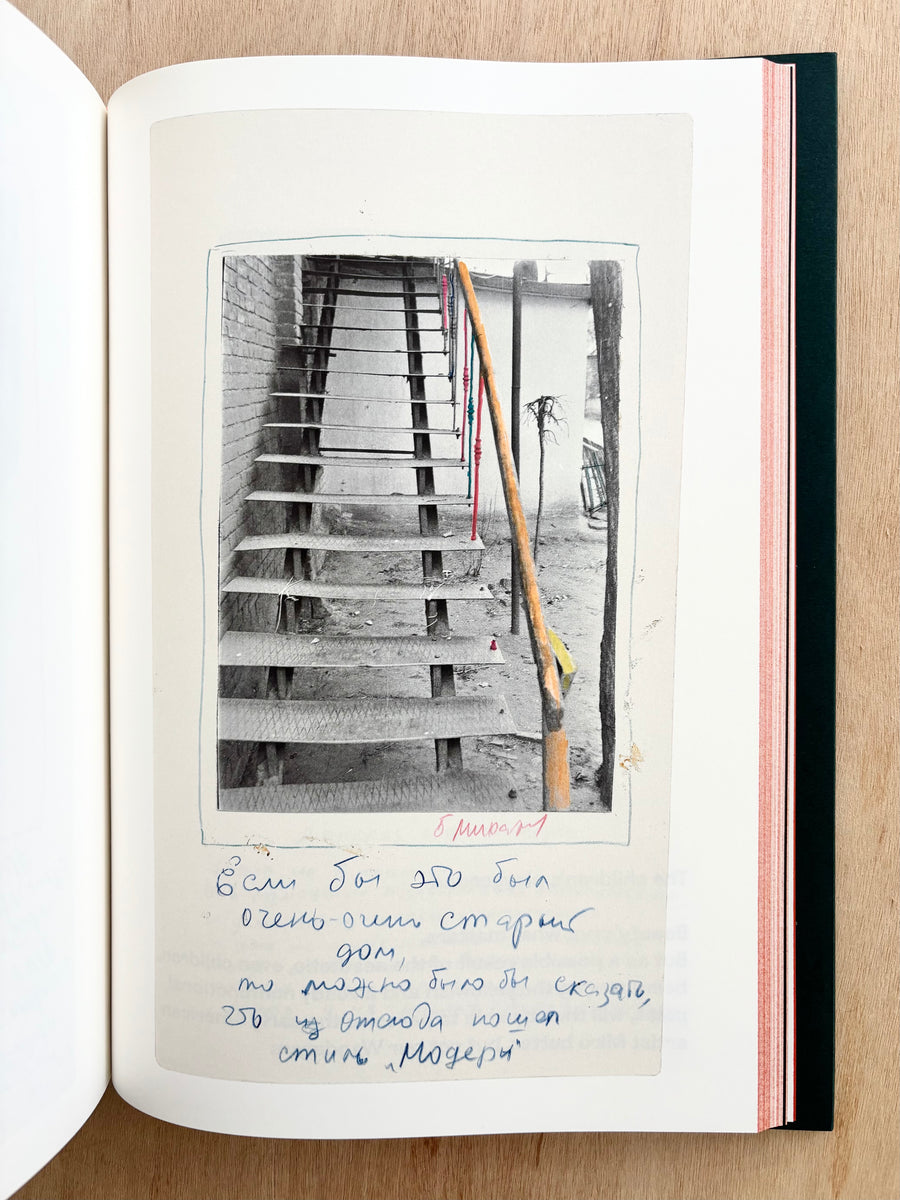 Если бы это был
очень-очень старый
дом,
то можно было бы сказать,
что из отсюда пошел
стиль „Модерн"